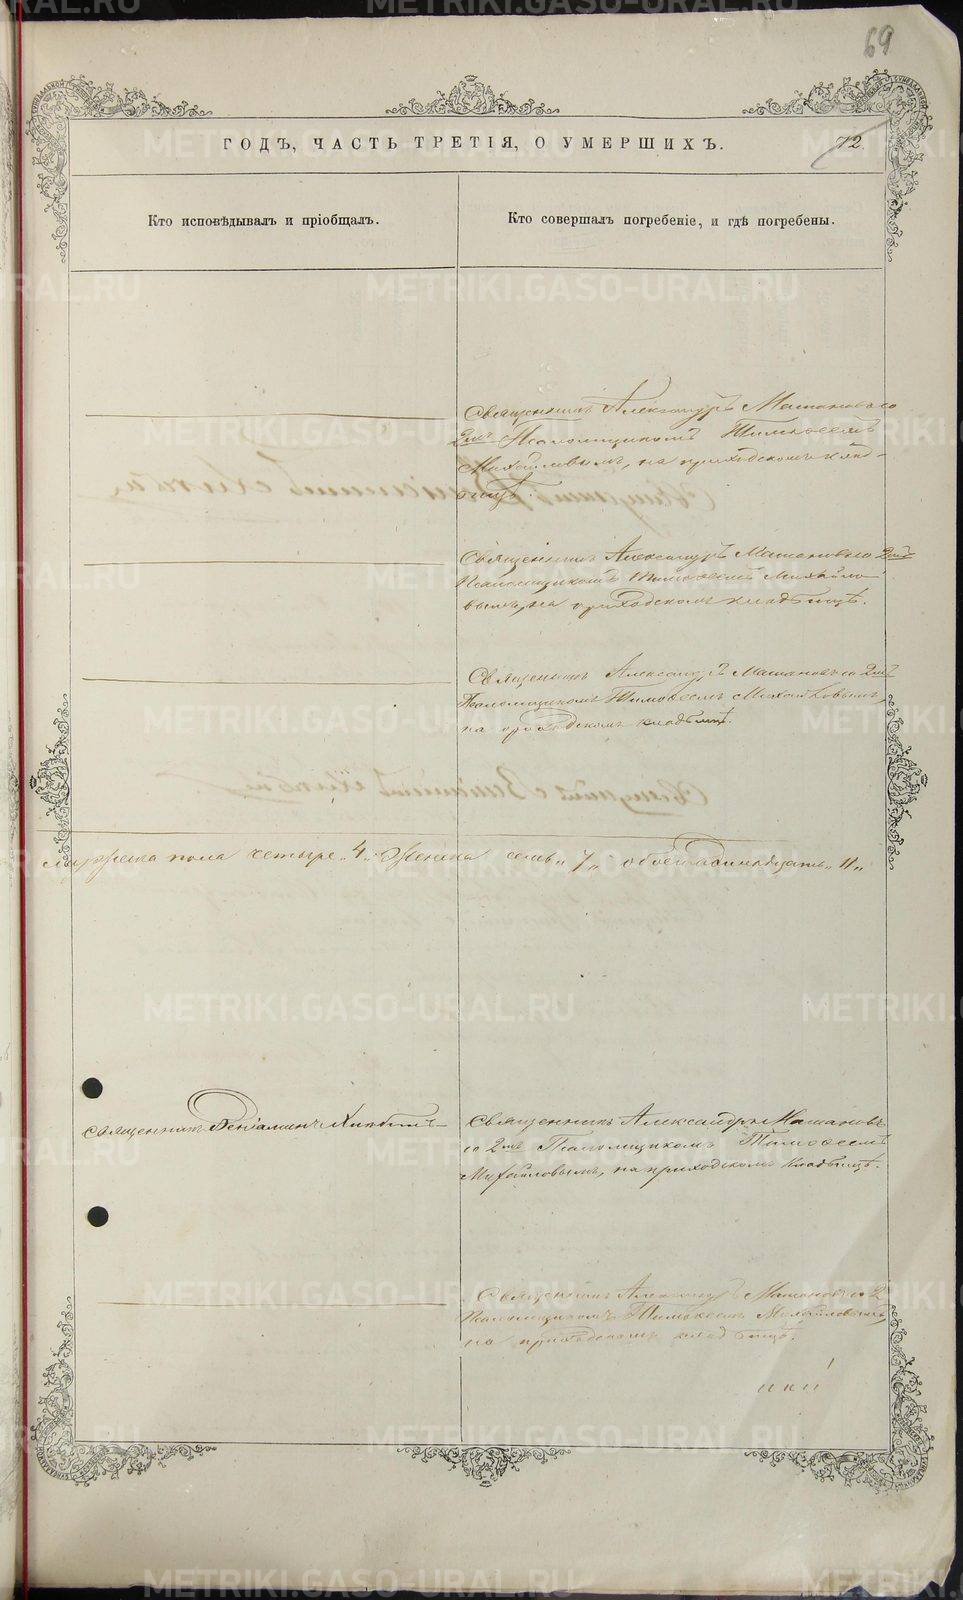 69
ГОДЪ, ЧАСТЬ ТРЕТІЯ, О УМЕРШИХЪ.
72.
Кто исповѣдывалъ и пріобщалъ.
Кто совершалъ погребеніе, и гдѣ погребены.
Священникъ Александръ Машановъ со
2мъ Псаломщикомъ Тимофеемъ
Михайловымъ, на приходскомъ клад-
бищѣ.
Священникъ Александръ Машановъ со 2мъ
Псаломщикомъ Тимофеемъ Михайло-
вымъ, на приходскомъ кладбищѣ.
Священникъ Александръ Машановъ со 2мъ
Псаломщикомъ Тимофеемъ Михайловымъ,
на приходскомъ кладбищѣ.
мужеска пола четыре „4„ Женска семь „7„ обоего одинадцать „11„
Священникъ Веніаминъ
Священникъ Александръ Машановъ
со 2мъ Псаломщикомъ Тимофеемъ
Михайловымъ, на приходскомъ кладбищѣ.
Священникъ Александръ Машановъ со 2
Псаломщикомъ Тимофеемъ Михайловымъ,
на приходскомъ кладбищѣ.
METRIKI.GASO-URAL.RU